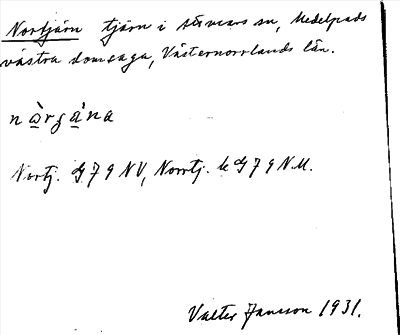 Nortjärn tjärn i Stöde sn, Medelpads
västra domsaga, Västernorrlands län.
nà̱rgá̱na
Nortj. G79NV, Norrtj. k G79N.M.
Valter Jansson 1931.